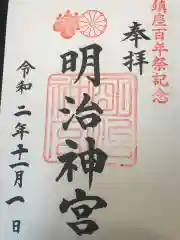 鎮座百年祭記念
奉拝
明治神宮
令和二年十一月一日